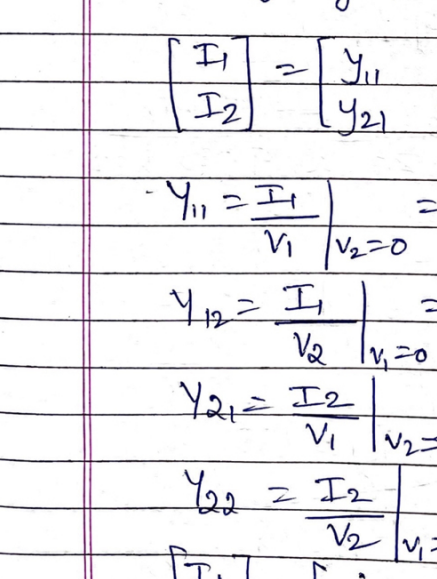 [I1 I2] = [Y11 Y21
Y11 = I1/V1 |V2=0 =
Y12 = I1/V2 |V1=0 =
Y21 = I2/V1 |V2=
Y22 = I2/V2 |V1=
[I1]